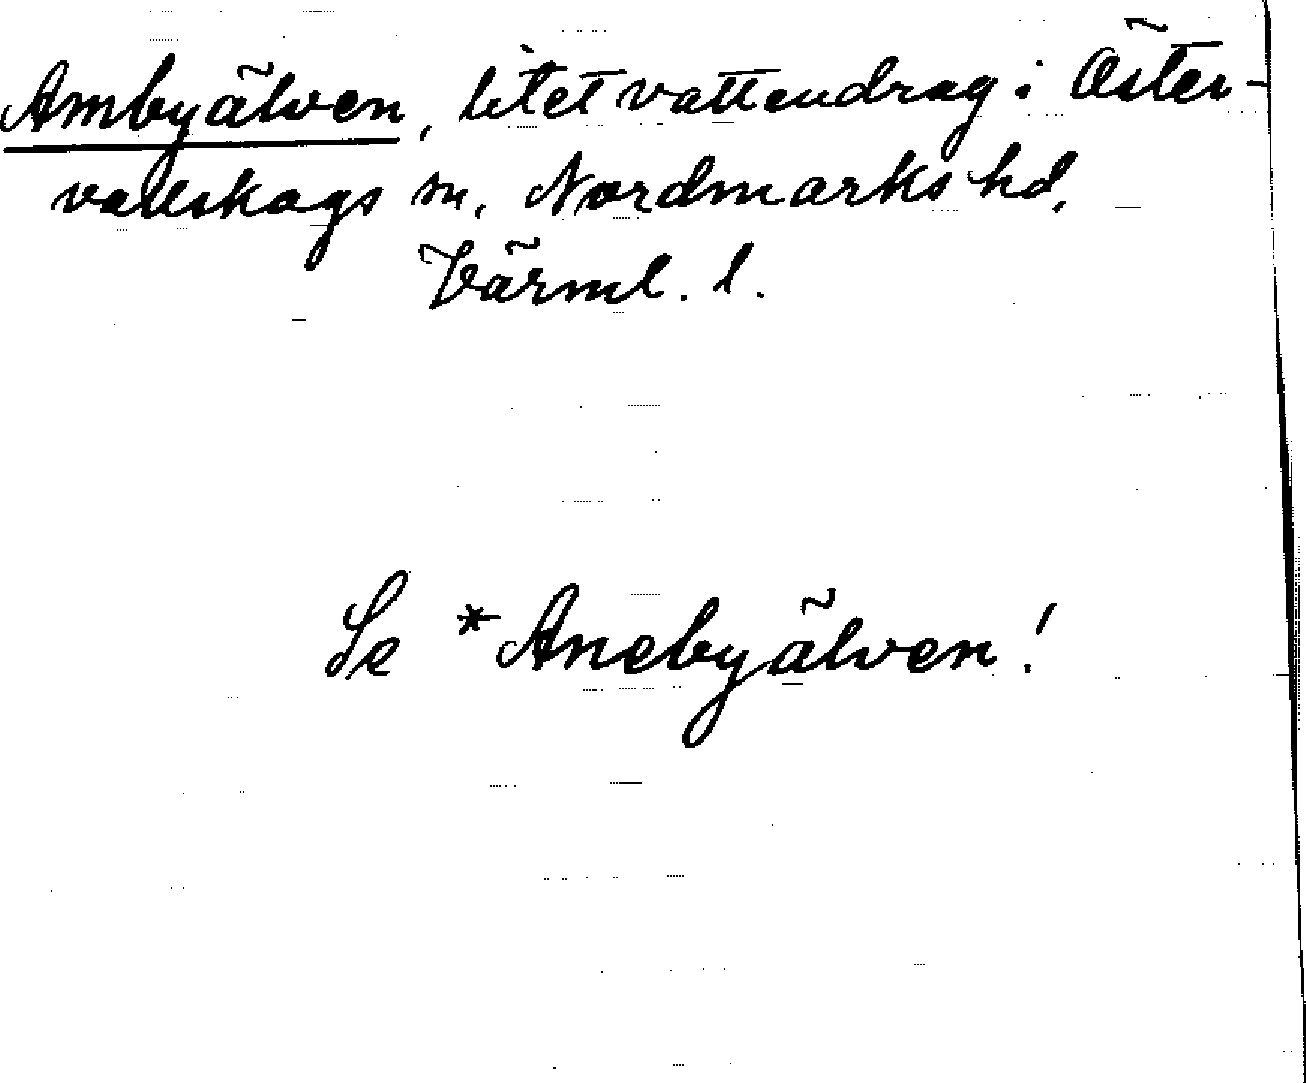 Ambyälven, litet vattendrag i Öster-
vallskogs sn, Nordmarks hd,
Värml. l.
Se *Anebyälven!